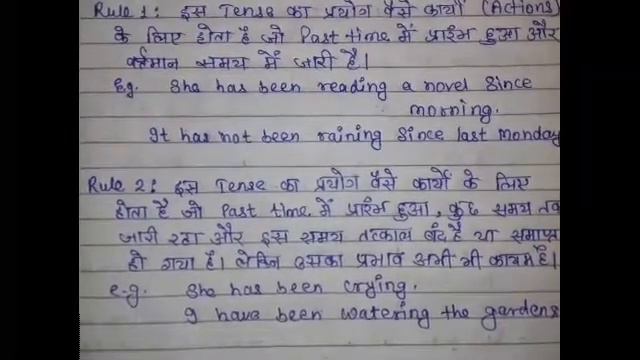 Rule 1: इस Tense का प्रयोग वैसे कार्यों (Actions)
के लिए होता है जो Past time में प्रारंभ हुआ और
वर्तमान समय में जारी है।
Eg. She has been reading a novel since
morning.
It has not been raining since last monday
Rule 2: इस Tense का प्रयोग वैसे कार्यों के लिए
होता है जो Past time में प्रारंभ हुआ, कुछ समय तक
जारी रहा और इस समय तत्काल बंद है या समाप्त
हो गया है। लेकिन उसका प्रभाव अभी भी कायम है।
e.g. She has been crying.
I have been watering the gardens